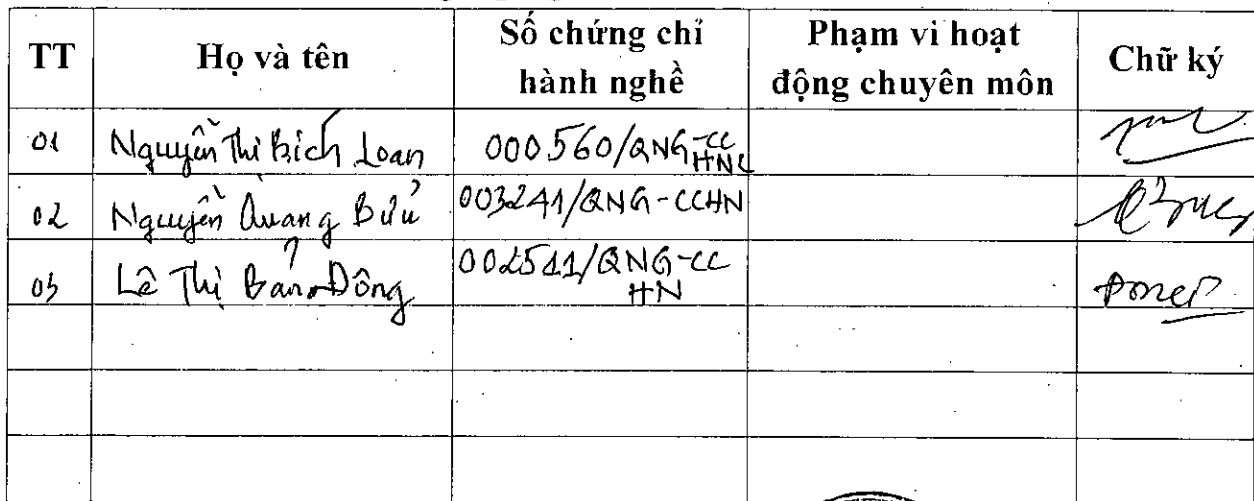 TT Họ và tên Số chứng chỉ hành nghề Phạm vi hoạt động chuyên môn Chữ ký
01 Nguyễn Thị Bích Loan 000560/QNG-CCHN
02 Nguyễn Quang Bửu 003241/QNG-CCHN
03 Lê Thị Bản Đông 002511/QNG-CCHN